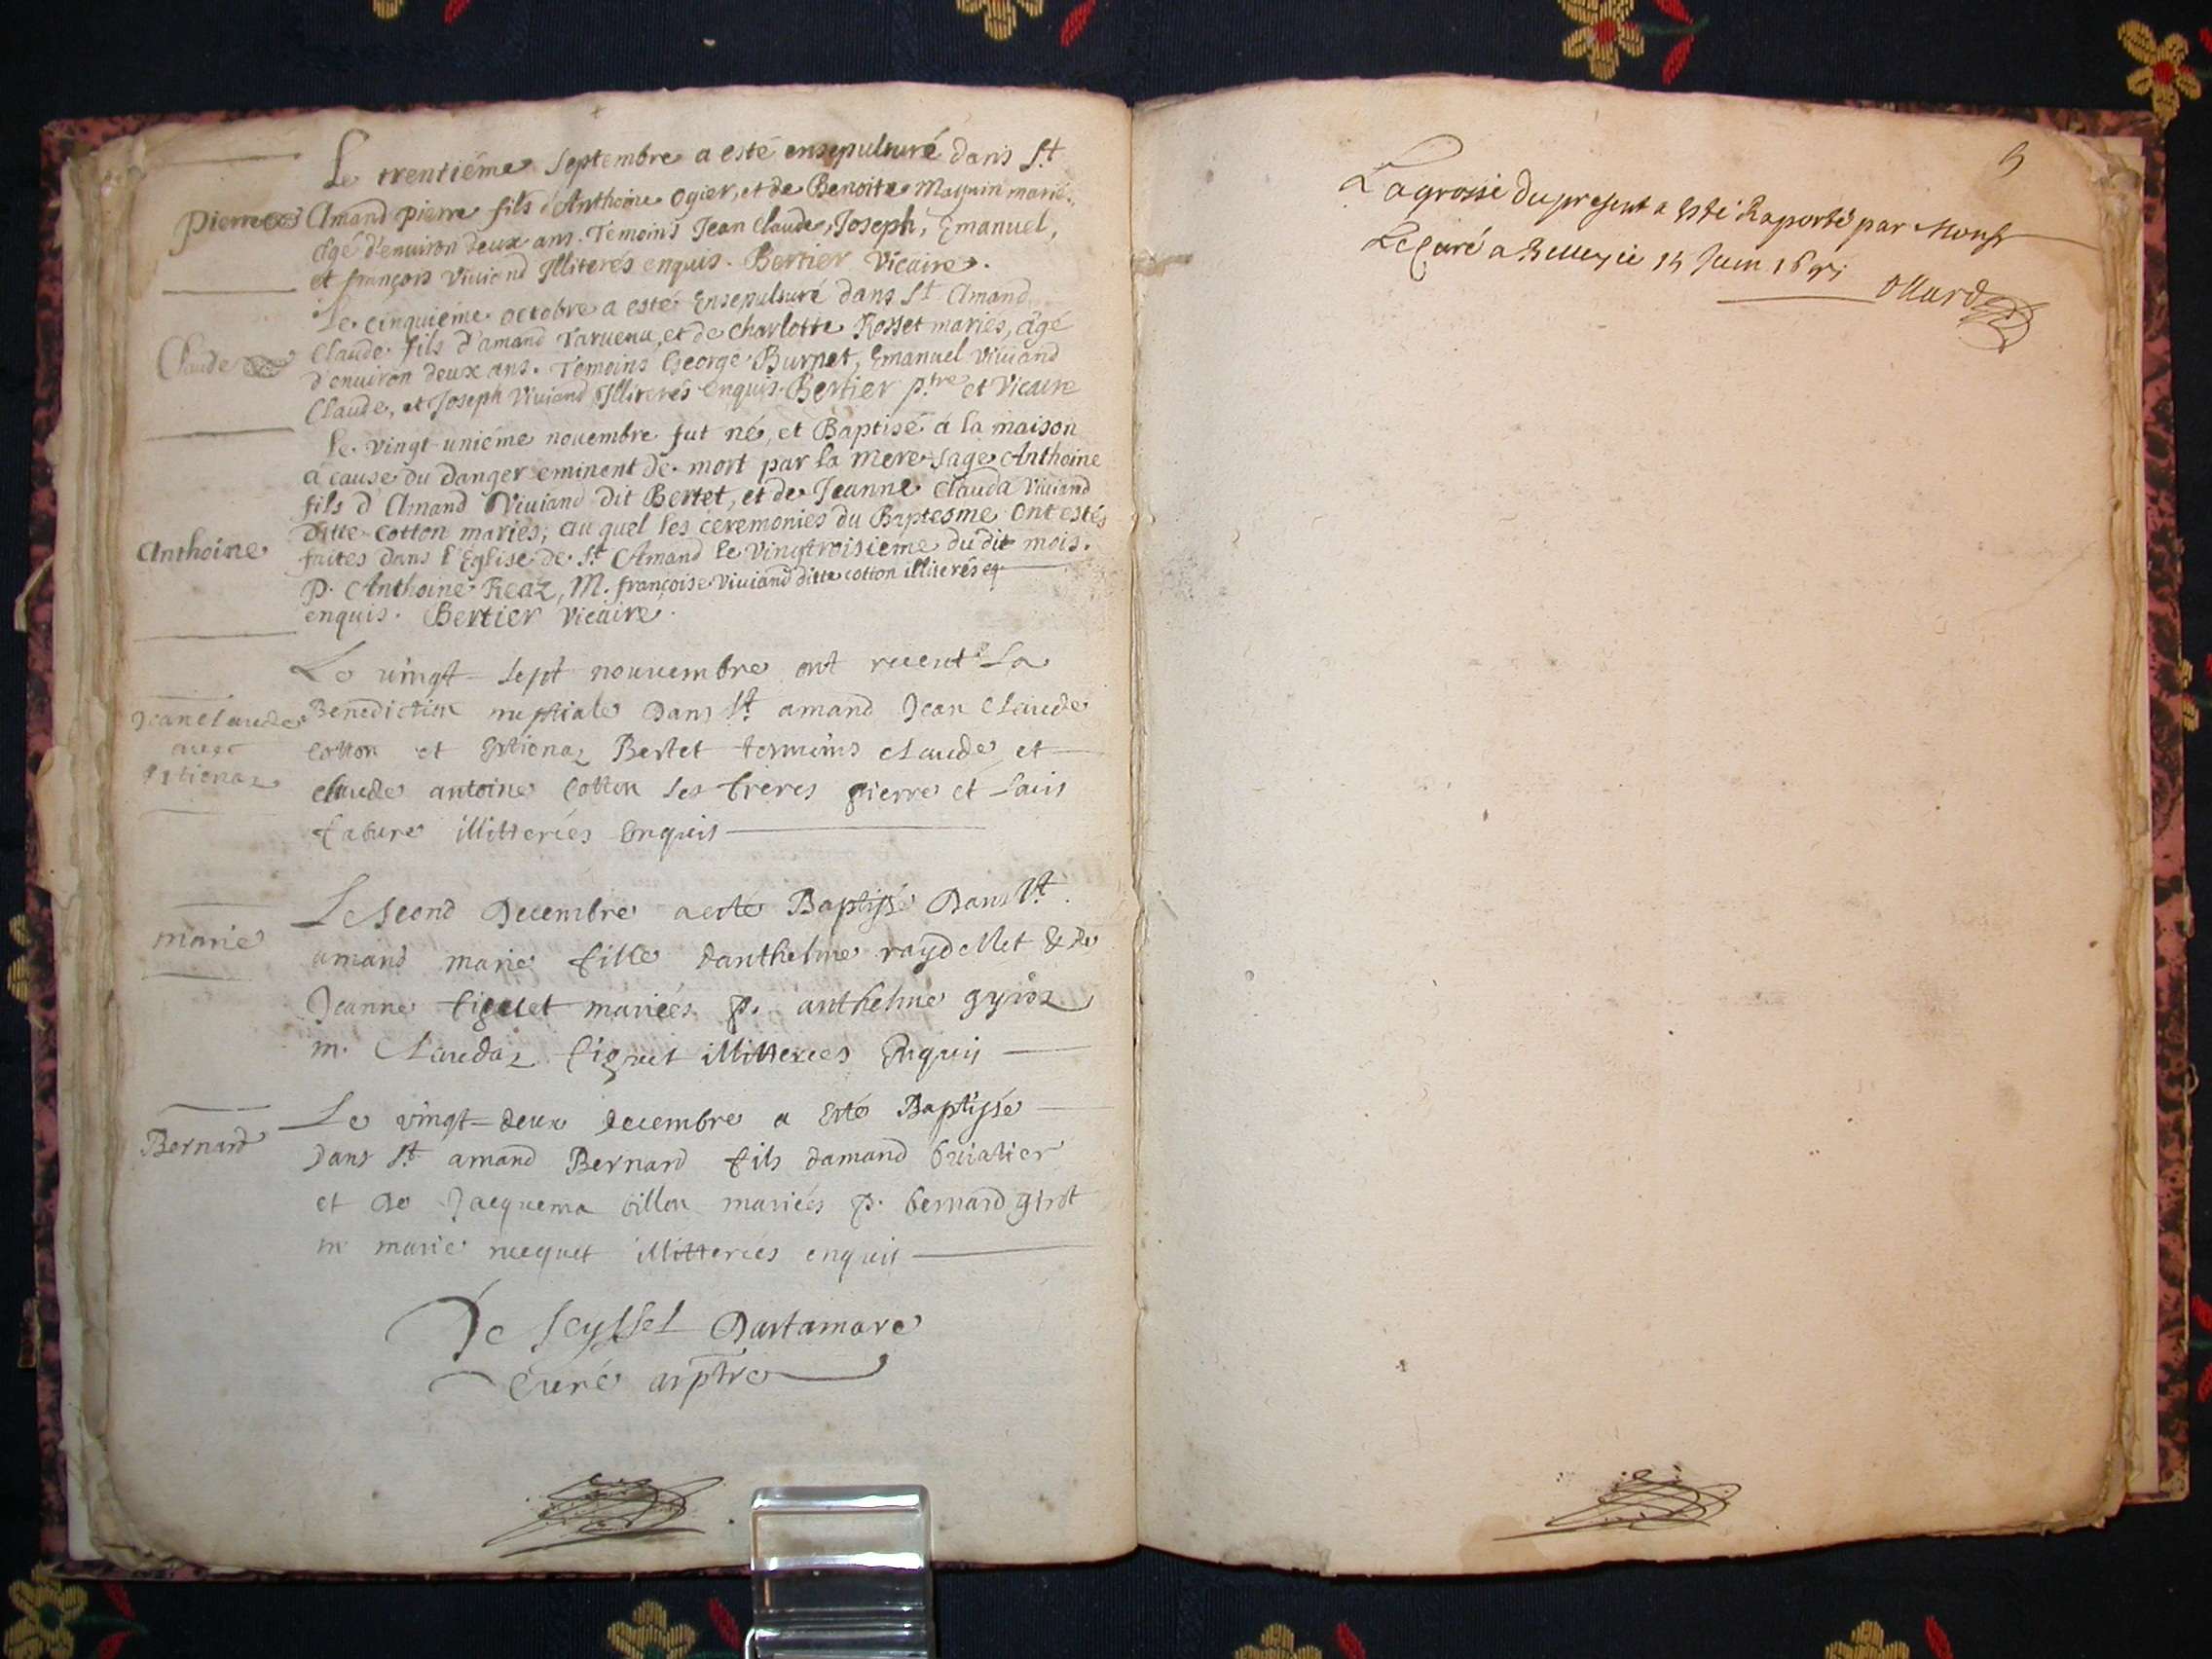 Le trentiéme Septembre a esté ensepulturé dans S.t
Pierre
Amand pierre fils d'Anthoine Ogier, et de Benoite Maguin marié.
âgé d'enuiron deux ans. Temoins Jean Claude, Joseph, Emanuel,
et françois Viuiand Illiterés enquis. Bertier Vicaire.
Le cinquiéme octobre a esté Ensepulturé dans S.t Amand
Claude
Claude fils d'amand Taruenu, et de charlotte Rosset mariés, âgé
d'enuiron deux ans. Temoins George Burnet, Emanuel Viuiand
Claude, et Joseph Viuiand Illiterés Enquis. Bertier p.tre et Vicaire
Le vingt uniéme nouembre fut né, et Baptisé á la maison
á cause du danger eminent de mort par la mere sage Anthoine
fils d'Amand Viuiand dit Bertet, et de Jeanne Clauda Viuiand
ditte Cotton mariés; au quel les ceremonies du Baptesme ont estés
Anthoine
faites dans l'Eglise de S.t Amand le Vingtroisieme du dit mois.
P. Anthoine Reaz, M. françoise Viuiand ditte cotton illiterés
enquis. Bertier Vicaire.
Le vingt-sept nouuembre ont la
Jean Claude
Benediction nuptiale dans S.t amand Jean Claude
auec
Cotton et Estienaz Bertet temoins claude et
Estienaz
claude antoine Cotton ses freres pierre et Louis
fabure illitterées Enquis
Le second Decembre a esté Baptissé Dans S.t
marie
amand marie fille danthelme raydellet & de
Jeanne mariées p. anthelme gyroz
m. Claudaz illitterees Enquis
Le vingt-deux decembre a Esté Baptissé
Bernard
Dans S.t amand Bernard fils damand
et de Jacquema billon mariées p. bernard girot
m marie illitterées enquis
De Seyssel Dartamare
Curé arptre
5
La grosse du present a Esté Raporté par Monsr
Le Curé a Belley ce 15 Juin